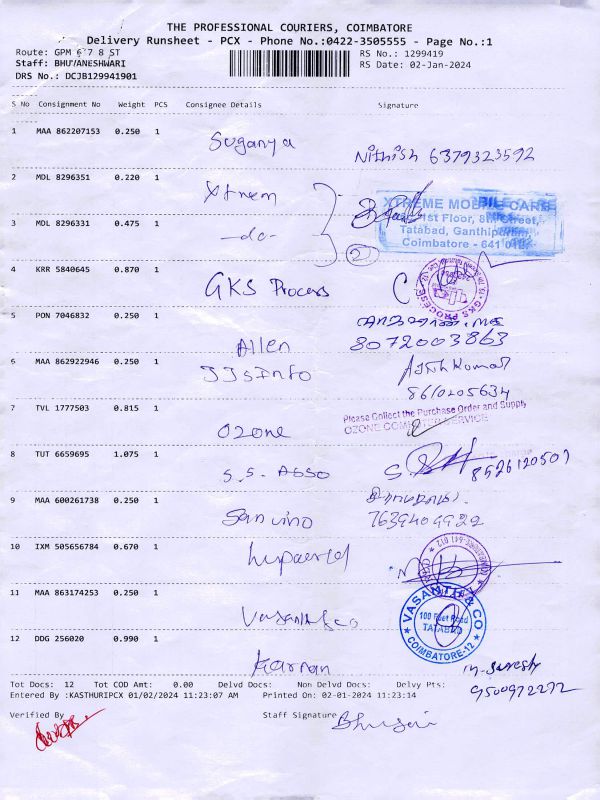 THE PROFESSIONAL COURIERS, COIMBATORE
Delivery Runsheet - PCX - Phone No.:0422-3505555 - Page No.:1
Route: GPM 6 7 8 ST
RS No.: 1299419
Staff: BHUVANESHWARI
RS Date: 02-Jan-2024
DRS No.: DCJB129941901
S No Consignment No Weight PCS Consignee Details Signature
1 MAA 862207153 0.250 1 Suganya Nithish 6379323592
2 MDL 8296351 0.220 1 Xtrem
XTREME MOBILE CARE
1st Floor, 8th Street,
Tatabad, Ganthipuram,
Coimbatore - 641 012.
3 MDL 8296331 0.475 1 -do- 2
4 KRR 5840645 0.870 1 GKS Process
GKS PROCESS
5 PON 7046832 0.250 1 Allen
8072003863
6 MAA 862922946 0.250 1 JJsInfo Ajithkumar
8610205634
7 TVL 1777503 0.815 1 Ozone
Please Collect the Purchase Order and Supply
OZONE COMPUTER SERVICE
8 TUT 6659695 1.075 1 S.S. Asso 8526120507
9 MAA 600261738 0.250 1 Sanvino
7639409922
10 IXM 505656784 0.670 1
11 MAA 863174253 0.250 1 Vasanth & co
VASANTH & CO
100 Feet Road
TATABAD
COIMBATORE-12
12 DDG 256020 0.990 1 Karnan
M. Suresh
9500972272
Tot Docs: 12 Tot COD Amt: 0.00 Delvd Docs: Non Delvd Docs: Delvy Pts:
Entered By :KASTHURIPCX 01/02/2024 11:23:07 AM Printed On: 02-01-2024 11:23:14
Verified By Staff Signature